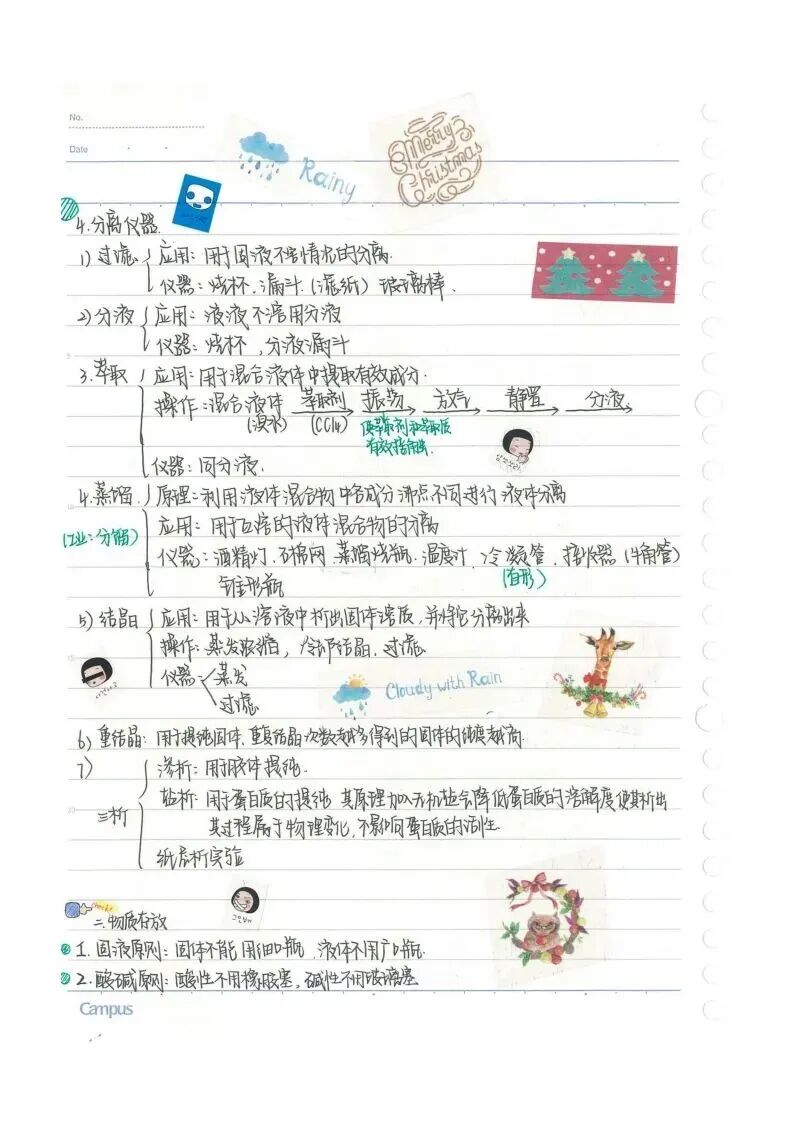 No.
Date
Rainy
Merry Christmas
4.分离仪器.
1) 过滤 应用：用于固液不溶情况的分离.
仪器：烧杯.漏斗.(滤纸) 玻璃棒.
2) 分液 应用：液液不溶用分液
仪器：烧杯,分液漏斗
3.萃取 应用：用于混合液体中提取有效成分.
操作：混合液体 萃取剂 振荡 放气 静置 分液
(溴水) (CCl4) 使萃取剂和萃取质
有效接触.
仪器：同分液.
4.蒸馏 原理：利用液体混合物中各成分沸点不同进行液体分离
应用：用于互溶的液体混合物的分离
(工业：分馏) 仪器：酒精灯.石棉网.蒸馏烧瓶.温度计.冷凝管.接收器(牛角管)
锥形瓶 (直形)
5) 结晶 应用：用于从溶液中析出固体溶质,并将它分离出来
操作：蒸发浓缩，冷却结晶.过滤.
仪器 蒸发
过滤.
Cloudy with Rain
6) 重结晶：用于提纯固体.重复结晶次数越多得到的固体的纯度越高.
7) 渗析：用于胶体提纯.
三析 盐析：用于蛋白质的提纯 其原理加入无机盐会降低蛋白质的溶解度使其析出
其过程属于物理变化,不影响蛋白质的活性.
纸层析实验
二.物质存放
1.固液原则：固体不能用细口瓶 液体不用广口瓶.
2.酸碱原则：酸性不用橡胶塞，碱性不用玻璃塞
Campus